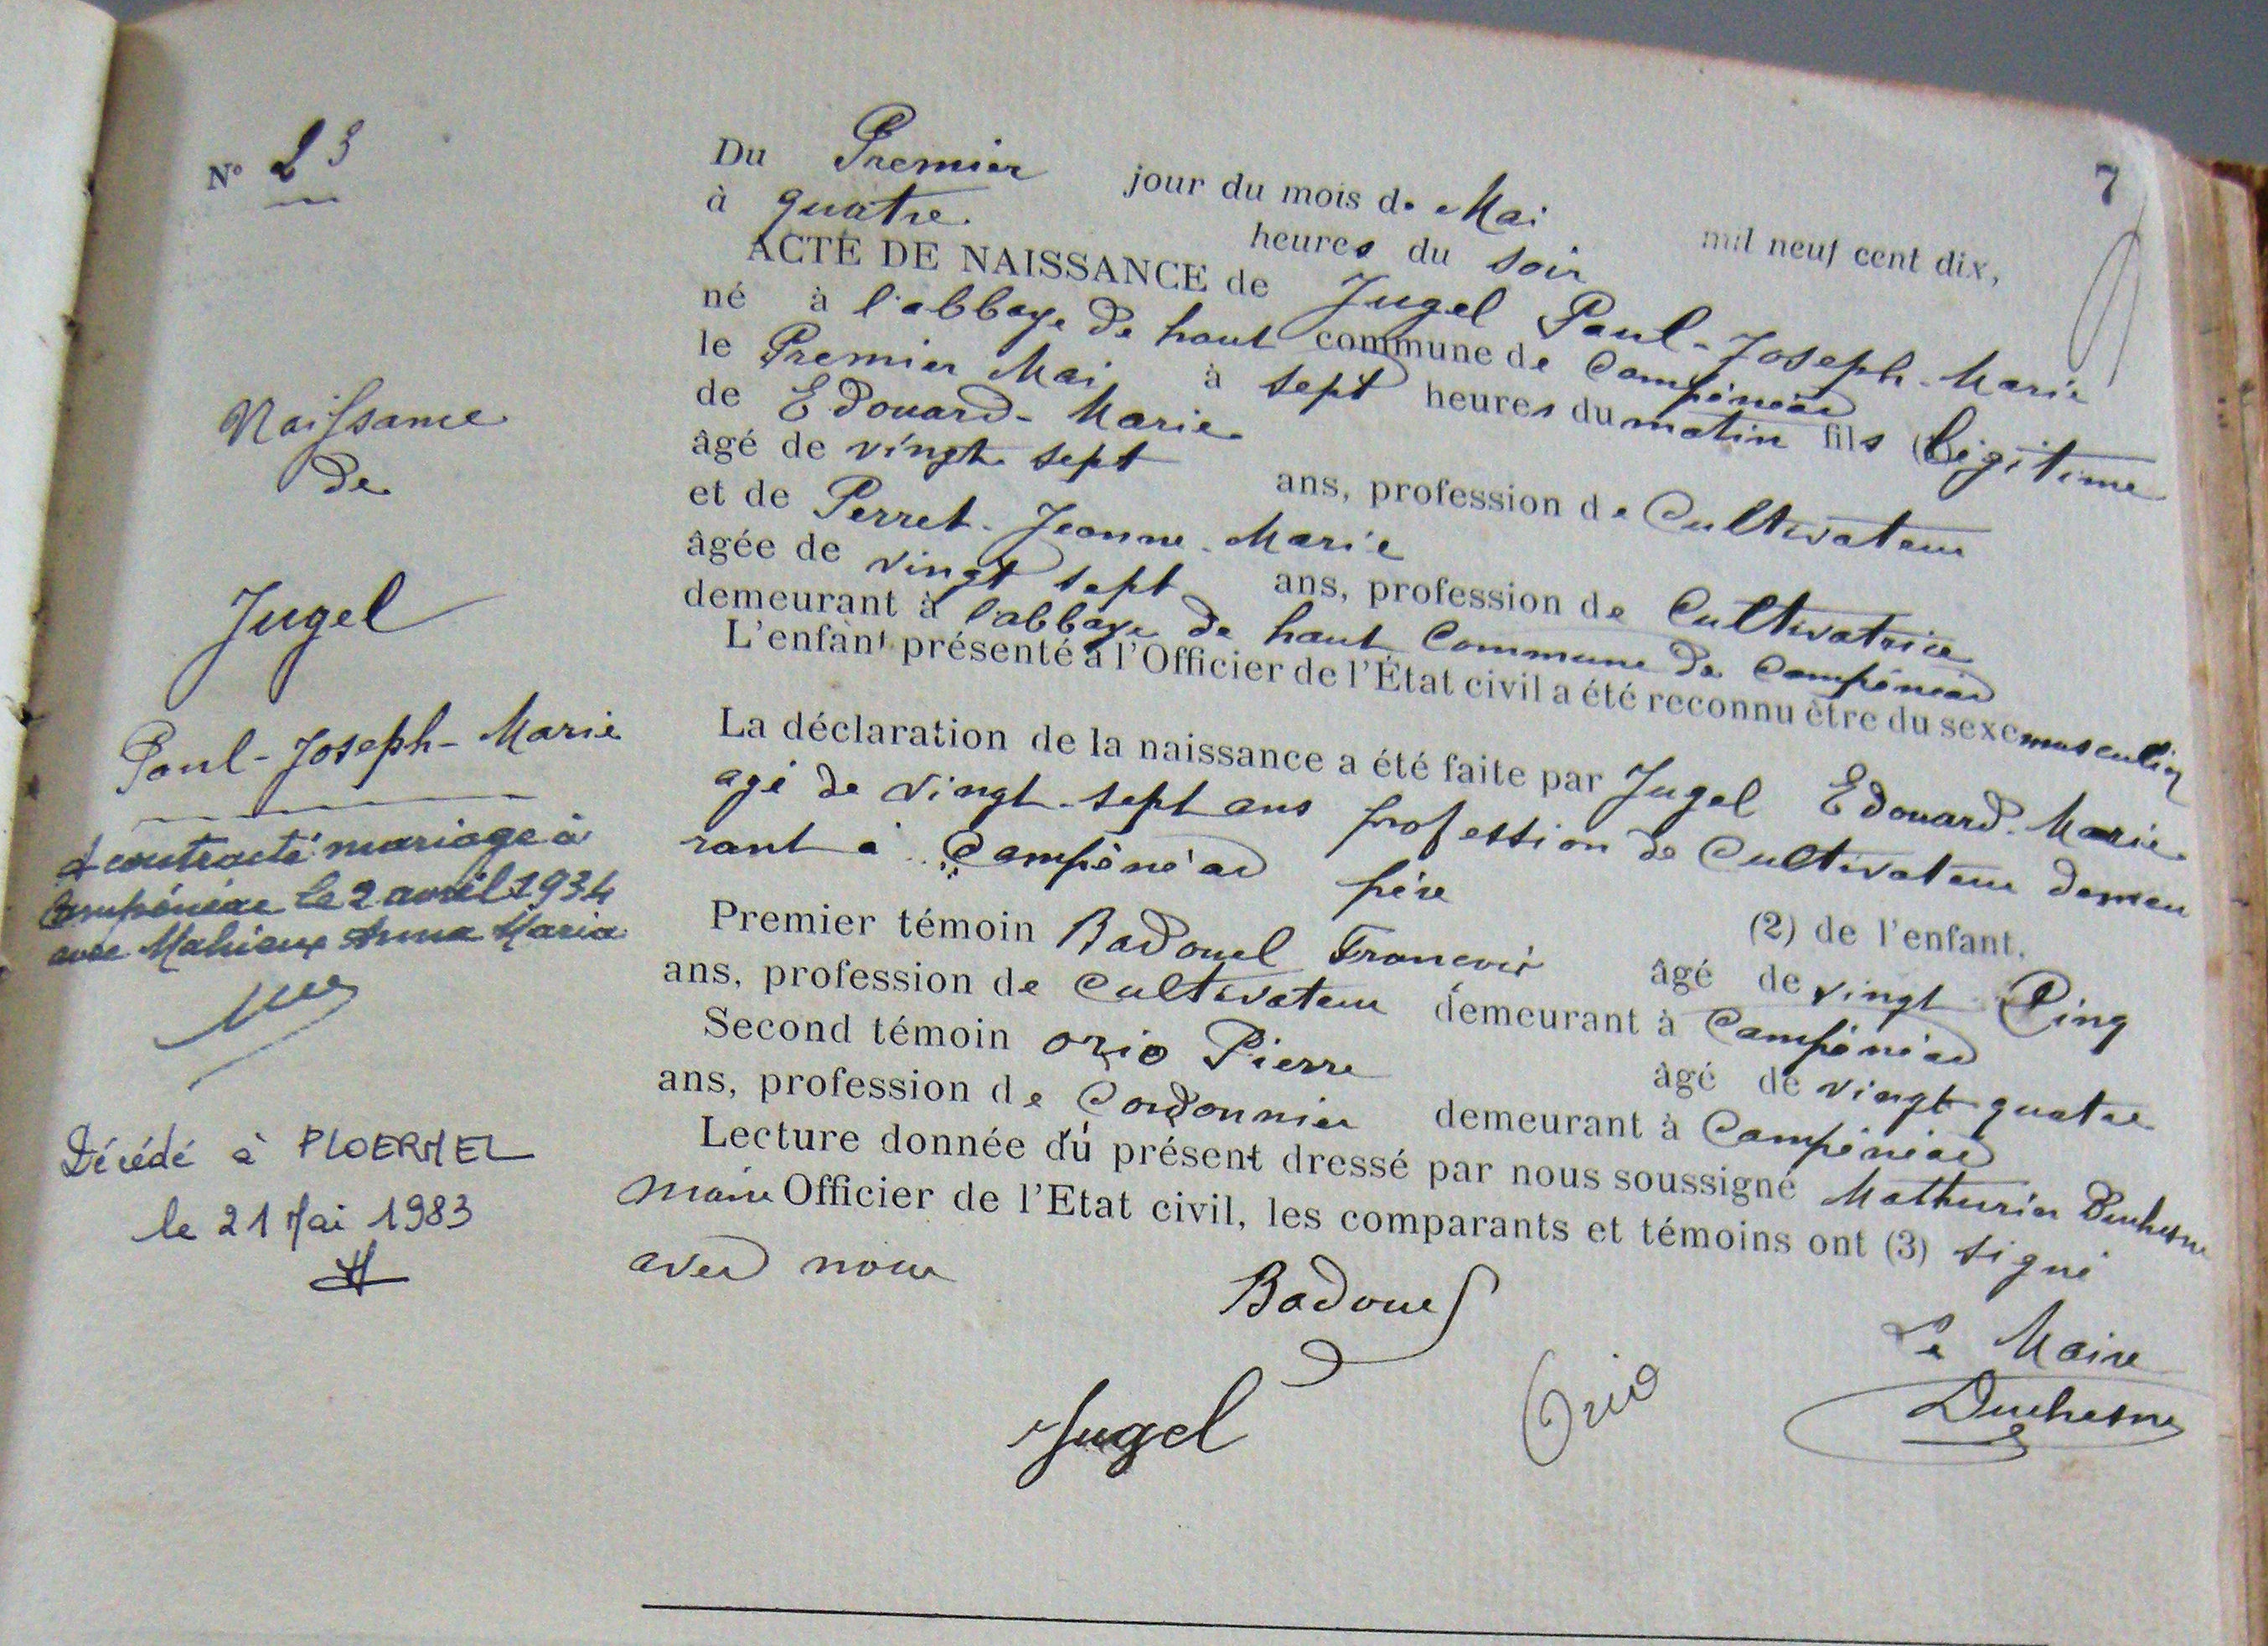 7
N° 23
Naissance
de
Jugel
Paul-Joseph-Marie
A contracté mariage à
Campénéac le 2 avril 1934
avec Mahieux Anna Maria
Décédé à PLOERMEL
le 21 Mai 1983
Du Premier jour du mois de Mai mil neuf cent dix,
à quatre heures du soir
ACTE DE NAISSANCE de Jugel Paul-Joseph-Marie
né à l'abbaye de haut commune de Campénéac
le Premier Mai à sept heures du matin fils (1) légitime
de Edouard-Marie
âgé de vingt sept ans, profession de Cultivateur
et de Perret-Jeanne-Marie
âgée de vingt sept ans, profession de Cultivatrice
demeurant à l'abbaye de haut Commune de Campénéac
L'enfant présenté à l'Officier de l'État civil a été reconnu être du sexe masculin
La déclaration de la naissance a été faite par Jugel Edouard-Marie
agé de vingt-sept ans profession de Cultivateur demeu
rant à Campénéac père (2) de l'enfant.
Premier témoin Badouel Francois âgé de vingt Cinq
ans, profession de Cultivateur demeurant à Campénéac
Second témoin orio Pierre âgé de vingt quatre
ans, profession de Cordonnier demeurant à Campénéac
Lecture donnée du présent dressé par nous soussigné Mathurin Duchesne
maire Officier de l'Etat civil, les comparants et témoins ont (3) signé
avec nous
Badouel
Le Maire
Jugel
Orio
Duchesne